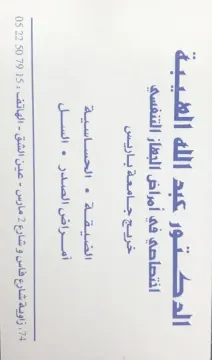 الدكتور عبد الله الهيبة
اختصاصي في أمراض الجهاز التنفسي
خريج جامعة باريس
الضيقة • الحساسية
أمراض الصدر • السل
74، زاوية شارع فاس و شارع 2 مارس - عين الشق - الهاتف : 05 22 50 79 15